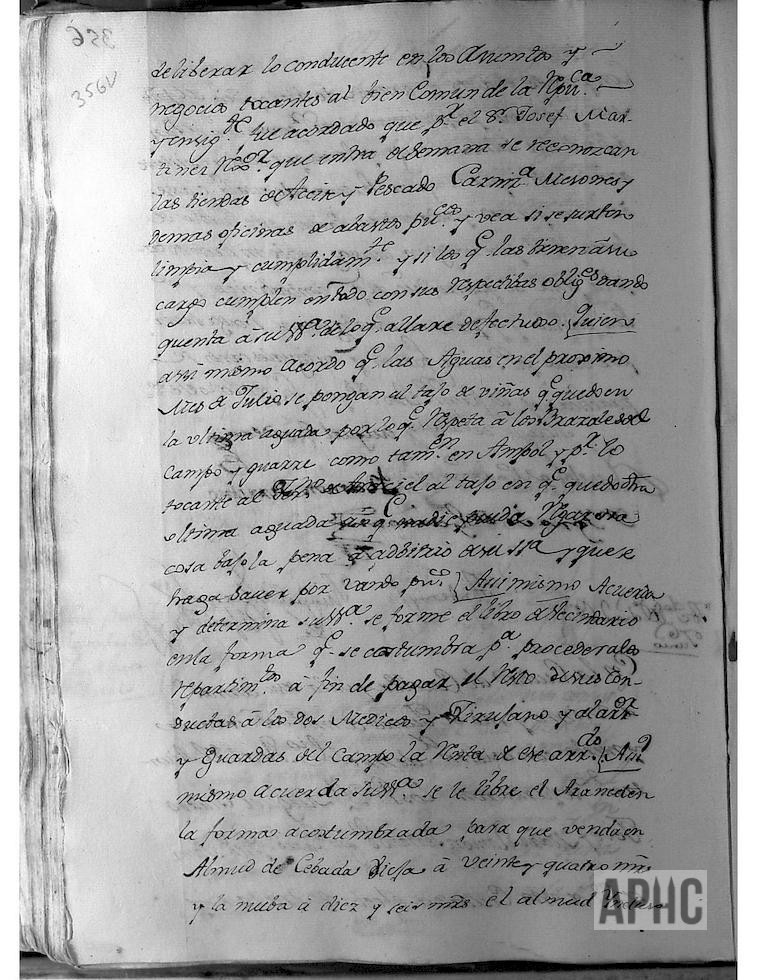 356
356v
deliberar lo conducente en los Asumtos y
negocios tocantes al bien Comun de la Rpu.ca
y en sig.te fue acordado que p.r el S.r Josef Mar-
tinez R.or que entra de Semana se reconozcan
las tiendas de Aceite y Pescado Carniz.a Mesones y
demas oficinas de abastos pu.cos y vea si se surten
limpia y cumplidam.te y si los q.e las tienen à su
cargo cumplen en todo con sus respectibas oblig.es dando
quenta à su ss.a de lo q.e allare defectuoso. Quien
asi mismo acordo q.e las Aguas en el proximo
Mes de Julio se pongan al tajo de viñas q.e quedo en
la ultima aguada por lo q.e respeta à los Brazales del
Campo y guarre como tam.bn en Ampol y p.r lo
tocante al el al tajo en q.e quedo otra
ultima aguada q.e nadie pueda regar otra
cosa bajo la pena a adbitrio de su ss.a y que se
haga saver por vando pu.co Asi mismo Acuerda
y determina su ss.a se forme el libro de Vecindario
en la forma q.e se costumbra p.a proceder a los
repartim.tos à fin de pagar el resto de sus con-
ductas à los dos Medicos y Zirujano y al
y Guardas del Campo la renta de ese arr.do Asi
mismo acuerda su ss.a se le libre el Arancel en
la forma acostumbrada para que venda en
Almud de Cebada Vieja à veinte y quatro mrs
y la nueba à diez y seis mrs el almud
APHC